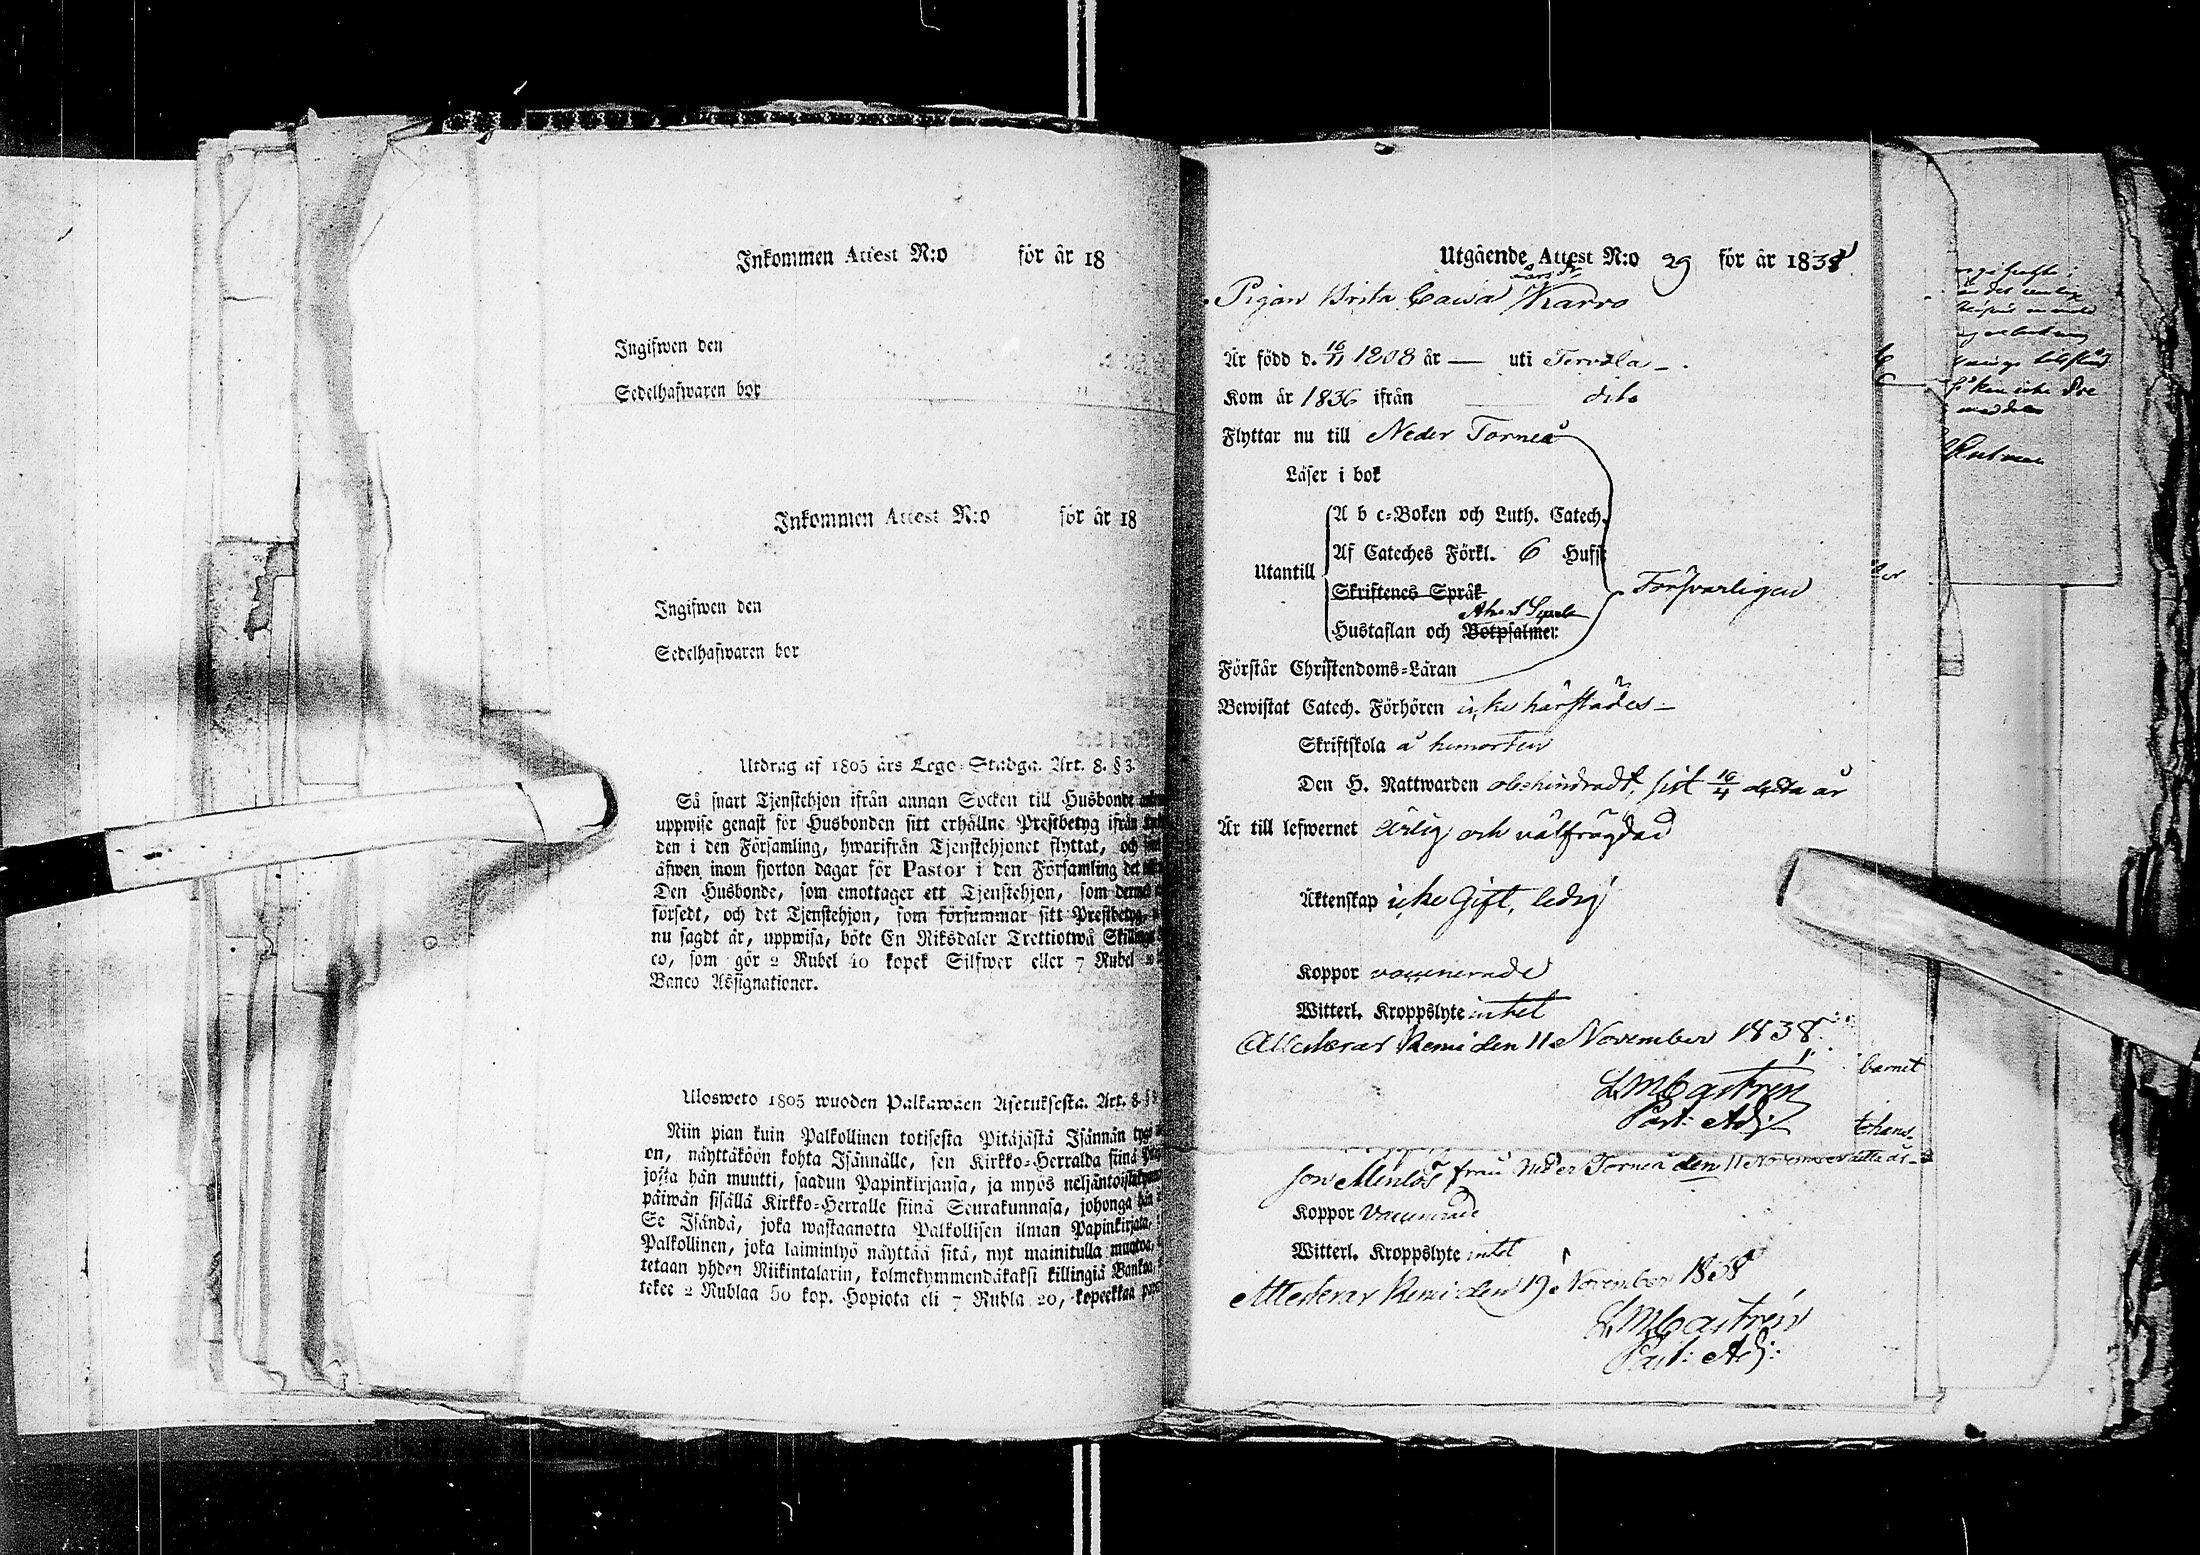 Inkommen Attest N:o för år 18
Ingifwen den
Sedelhafwaren bor
Inkommen Attest N:o för år 18
Ingifwen den
Sedelhafwaren bor
Utdrag af 1805 års Lego-Stadga. Art. 8. § 3.
Så snart Tjenstehjon ifrån annan Socken till Husbonde
uppwise genast för Husbonden sitt erhållne Prestbetyg ifrån
den i den Församling, hwarifrån Tjenstehjonet flyttat, och
äfwen inom fjorton dagar för Pastor i den Församling det
Den Husbonde, som emottager ett Tjenstehjon, som
försedt, och det Tjenstehjon, som försummar sitt Prestbetyg,
nu sagdt är, uppwisa, böte En Riksdaler Trettiotwå Skillingar
co, som gör 2 Rubel 40 kopek Silfwer eller 7 Rubel
Banco Assignationer.
Ulosweto 1805 wuoden Palkawäen Asetuksesta. Art. 8. §
Niin pian kuin Palkollinen totisesta Pitäjästä Isännän
on, näyttäköön kohta Isännälle, sen Kirkko-Herralda siinä
josta hän muutti, saadun Papinkirjansa, ja myös
päiwän sisällä Kirkko-Herralle siinä Seurakunnasa, johonga hän
Se Isändä, joka wastaanotta Palkollisen ilman Papinkirjata,
Palkollinen, joka laiminlyö näyttää sitä, nyt mainitulla muotoa,
tetaan yhden Riikintalarin, kolmekymmendäkaksi killingiä Bankoa,
tekee 2 Rublaa 50 kop. Hopiota eli 7 Rubla 20, kopeekkaa
Utgående Attest N:o 29 för år 1838
Larsdr
Pigan Brita Caisa Karro
Är född d. 16/11 1808 år — uti Tervola
Kom år 1836 ifrån dito
Flyttar nu till Neder Torneå
Läser i bok
A b c-Boken och Luth. Catech.
Af Cateches Förkl. 6 Hufst
Utantill
Skriftenes Språk
Hustaflan och Botpsalmer
Försvarligen
Förstår Christendoms-Läran
Bewistat Catech. Förhören icke härstädes
Skriftskola å hemorten
Den H. Nattwarden obehindradt, sist 16/4 detta år
Är till lefwernet ärlig och välfrägdad
Äktenskap icke Gift, ledig
Koppor vaccinerade
Witterl. Kroppslyte intet
Attesterar Kemi den 11e November 1838
LMCastrén
Past: Adj:
barnet
från Neder Torneå den 11 November
Koppor Vaccinerade
Witterl. Kroppslyte intet
Attesterar Kemi den 19e November 1838
LMCastrén
Past: Adj: